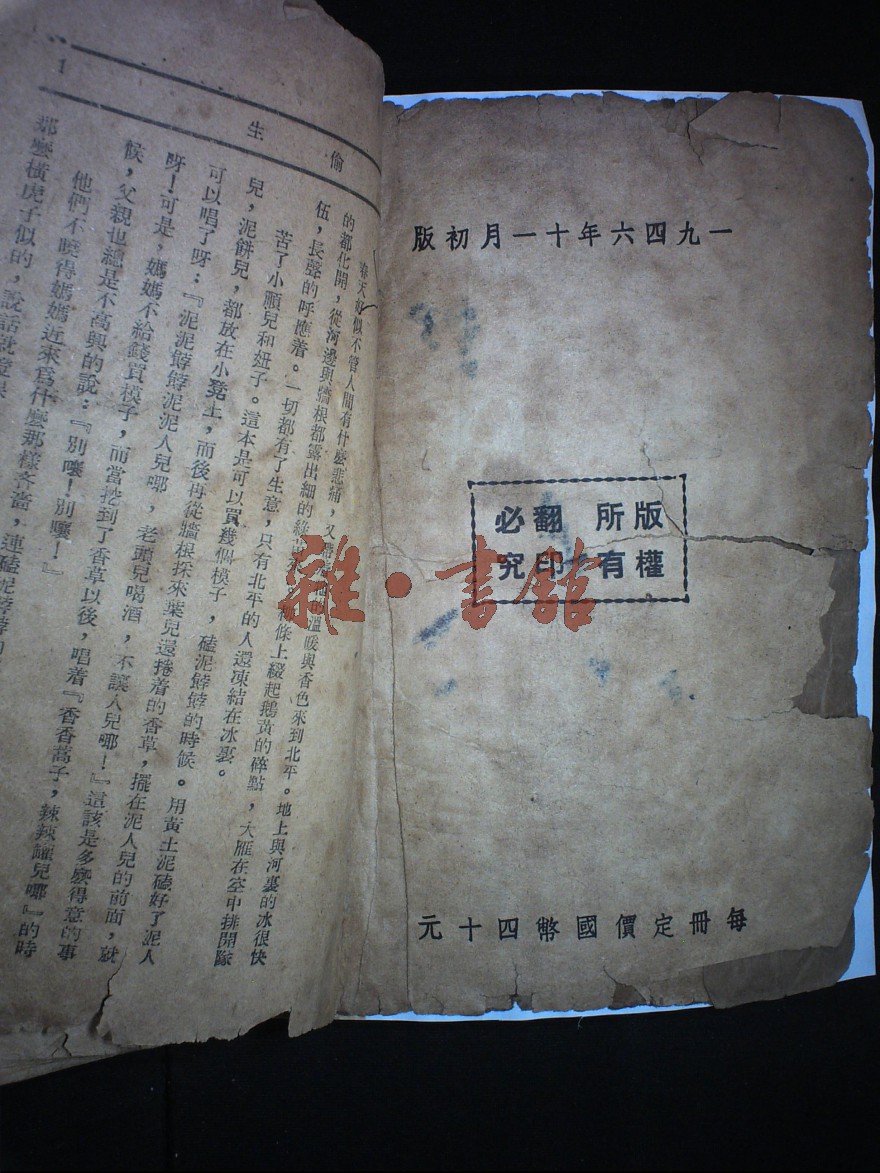 一九四六年十一月初版
版權所有
翻印必究
每冊定價國幣四十元
偷生
1
春天好似不管人間有什麼悲痛，又帶 的溫暖與香色來到北平。地上與河裏的冰很快
的都化開，從河邊與牆根都露出細的綠 柳條上綴起鵝黃的碎點，大雁在空中排開隊
伍，長聲的呼應着。一切都有了生意，只有北平的人還凍結在冰裏。
苦了小順兒和妞子。這本是可以買幾個模子，磕泥餑餑的時候。用黃土泥磕好了泥人
兒，泥餅兒，都放在小凳上，而後再從牆根採來葉兒還捲着的香草，擺在泥人兒的前面，就
可以唱了呀：『泥泥餑餑泥泥人兒哪，老頭兒喝酒，不讓人兒哪！』這該是多麼得意的事
呀！可是，媽媽不給錢買模子，而當挖到了香草以後，唱着『香香蒿子，辣辣罐兒哪』的時
候，父親也總是不高興的說：『別嚷！別嚷！』
他們不曉得媽媽近來爲什麼那樣吝嗇，連磕泥餑餑的
那麼橫虎子似的，說話就瞪
雜·書館